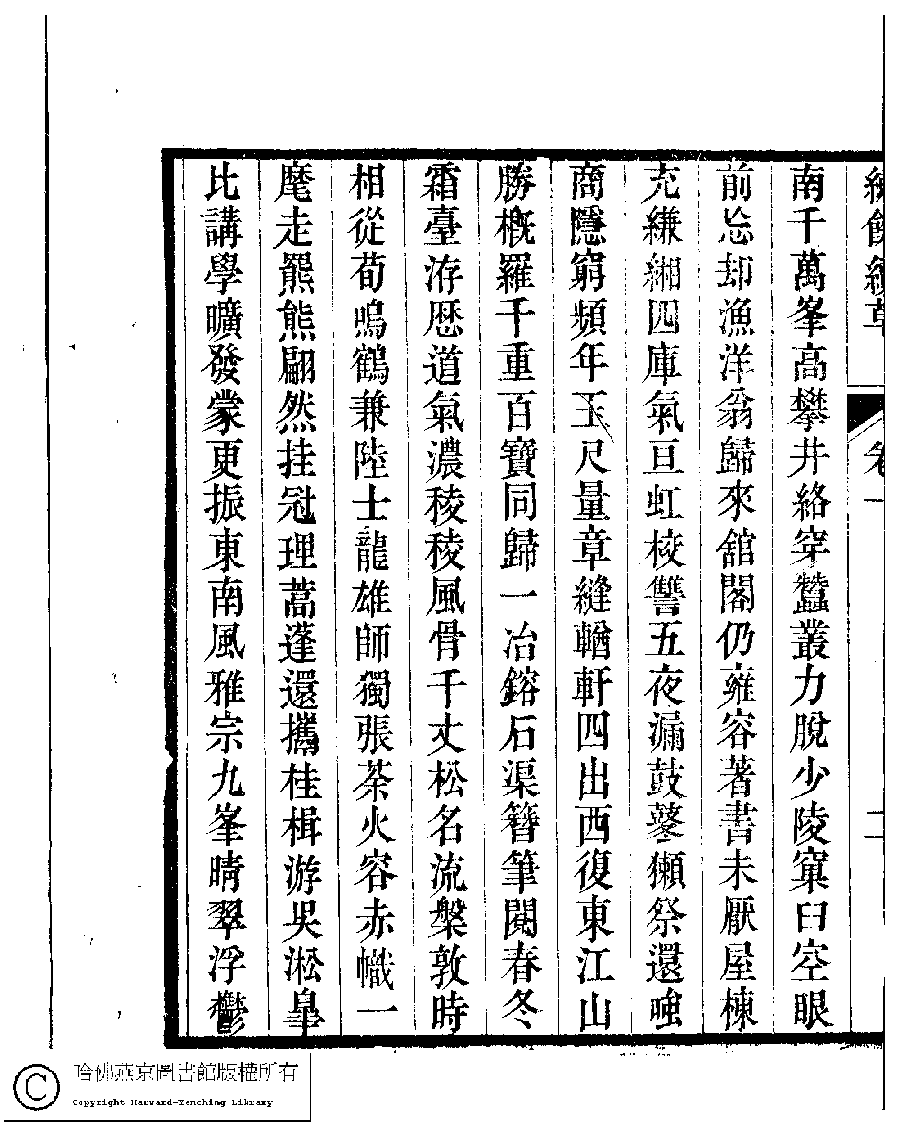 續草 卷一 二
南千萬峯高攀井絡穿蠶叢力脫少陵窠臼空眼
前忘却漁洋翁歸來舘閣仍雍容著書未厭屋棟
充縑緗四庫氣亘虹校讐五夜漏鼓鼕獺祭還嗤
商隱窮頻年玉尺量章縫輶軒四出西復東江山
勝概羅千重百寶同歸一冶鎔石渠簪筆閱春冬
霜臺洊歷道氣濃稜稜風骨千丈松名流槃敦時
相從荀鳴鶴兼陸士龍雄師獨張荼火容赤幟一
麾走羆熊翩然挂冠理蒿蓬還攜桂楫游吳淞臯
比講學曠發蒙更振東南風雅宗九峯晴翠浮鬱
哈佛燕京圖書館版權所有
Copyright Harvard-Yenching Library